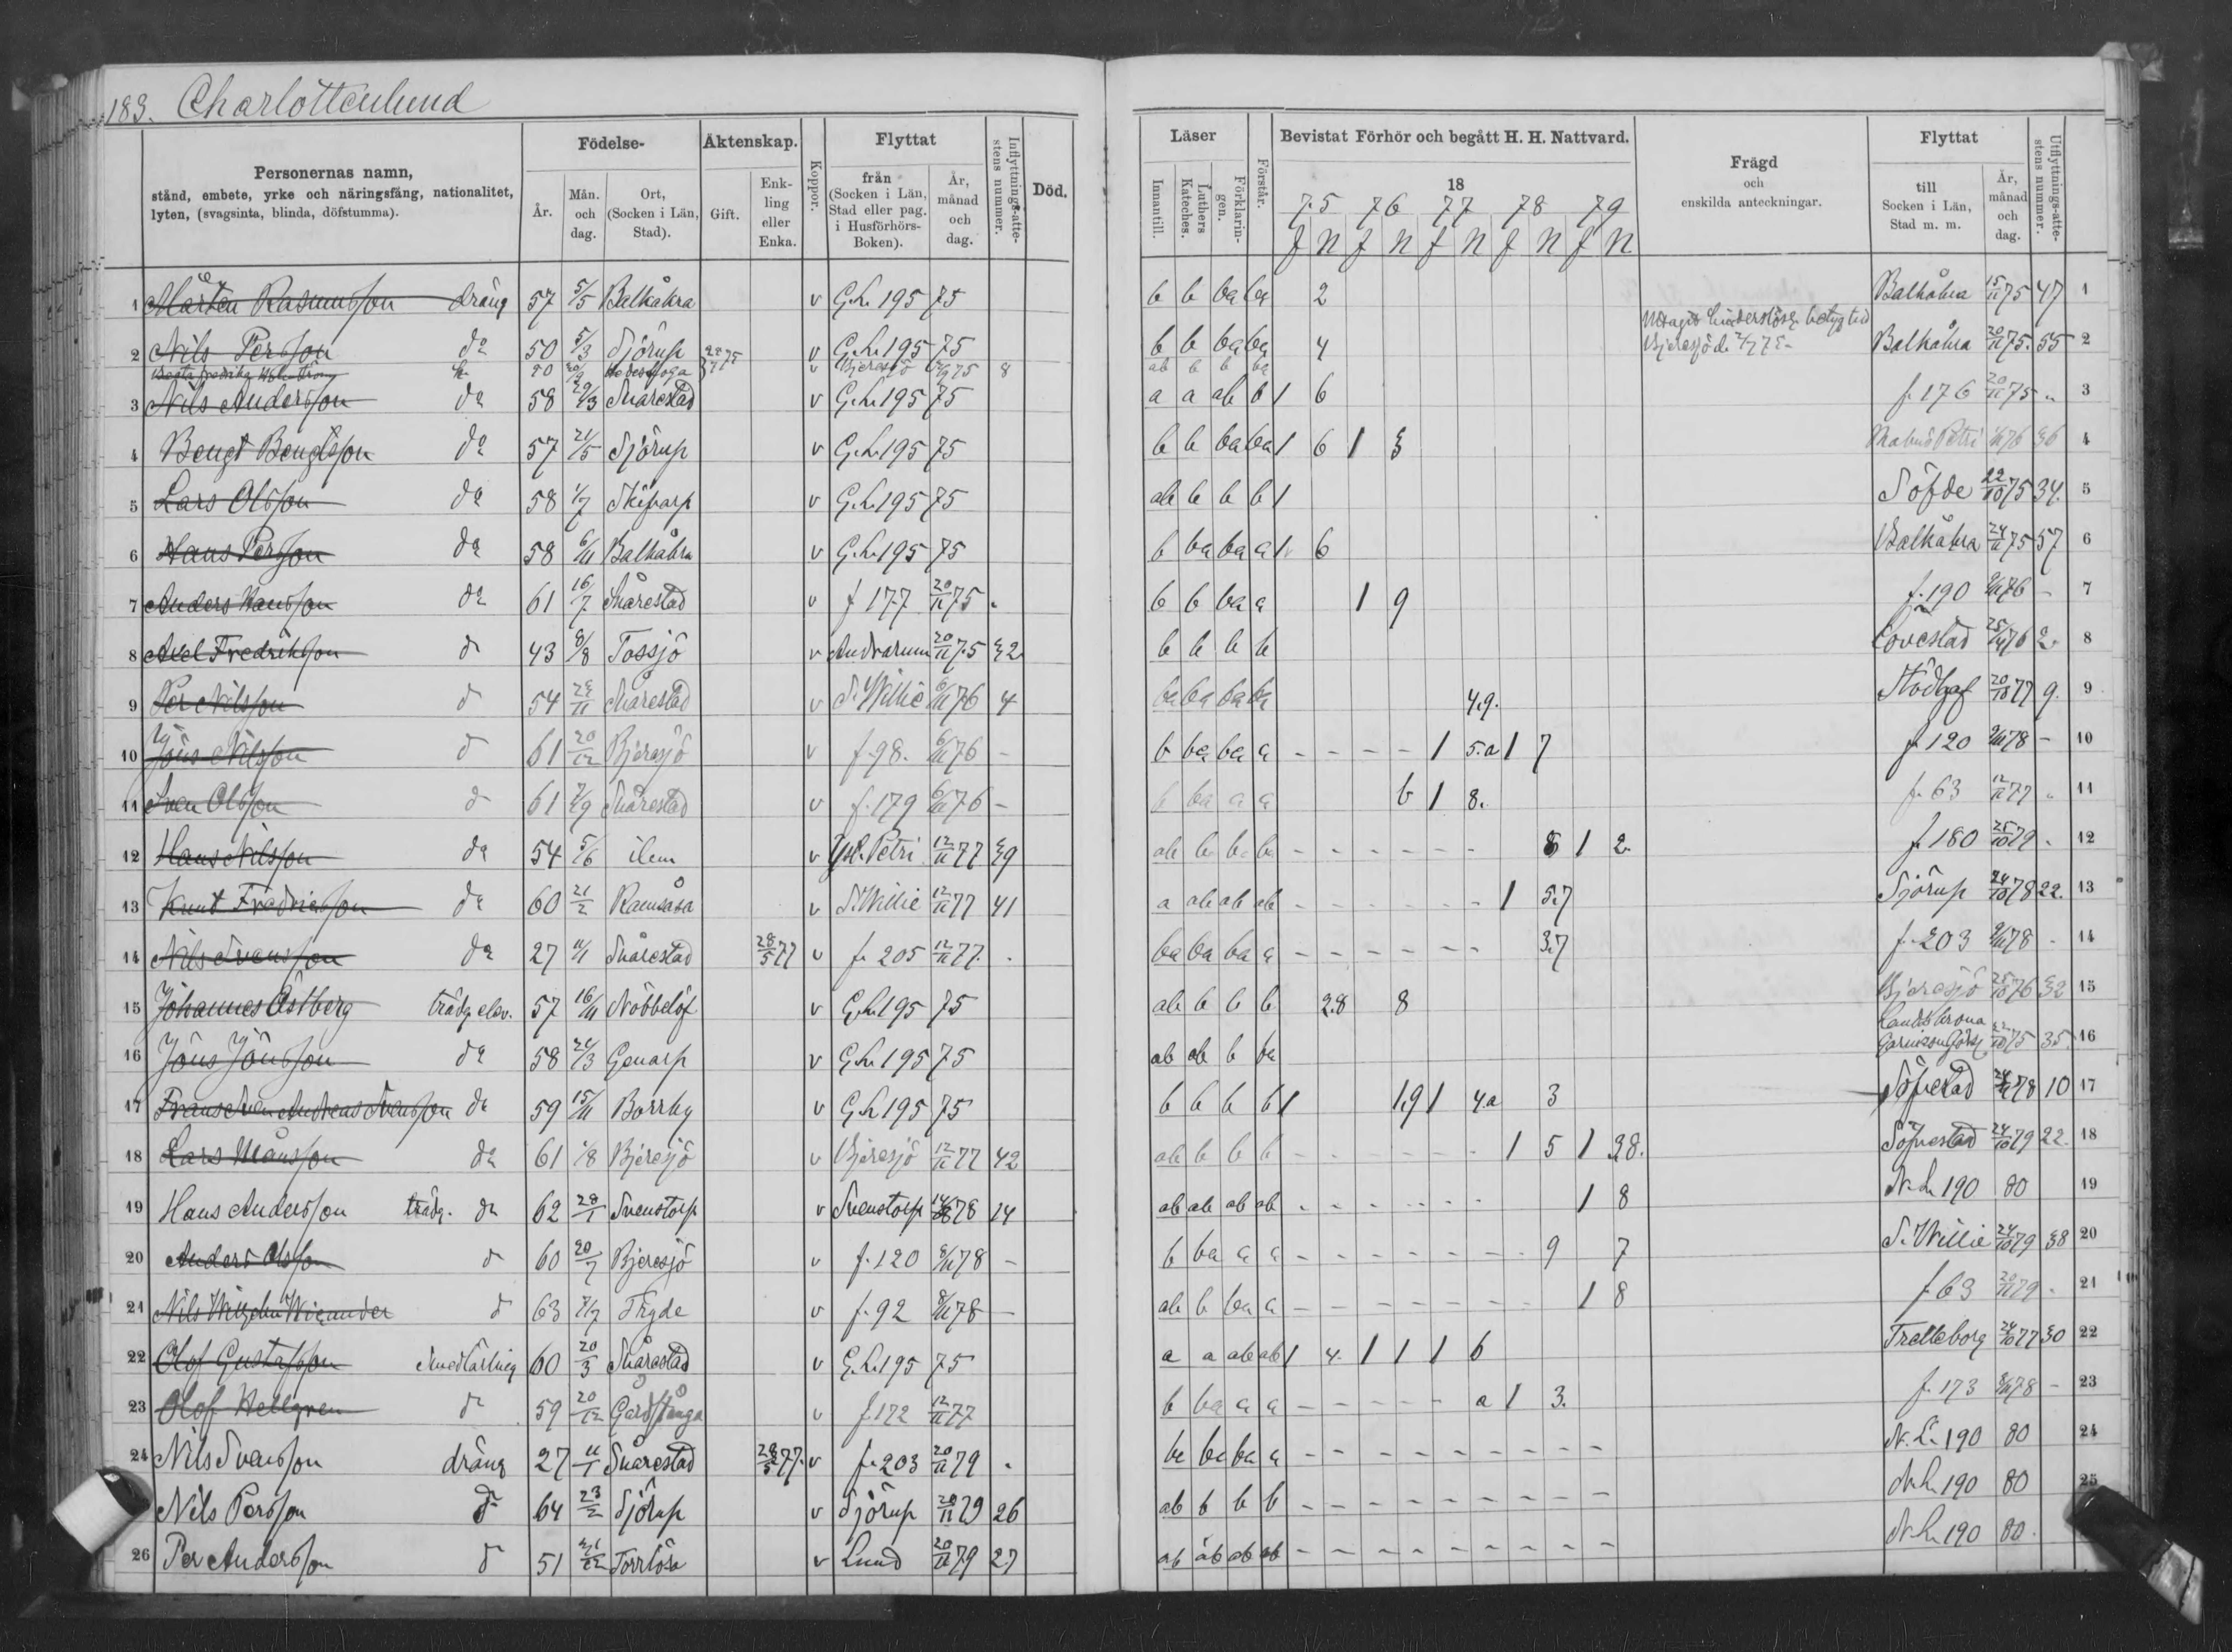 183. Charlottenlund
Personernas namn,
stånd, embete, yrke och näringsfång, nationalitet,
lyten, (svagsinta, blinda, döfstumma).
Födelse-
År.
Mån. och dag.
Ort, (Socken i Län, Stad).
Äktenskap.
Gift.
Enk- ling eller Enka.
Koppor.
Flyttat
från (Socken i Län, Stad eller pag. i Husförhörs- Boken).
År, månad och dag.
Inflyttnings-atte- stens nummer.
Död.
Läser
Innantill.
Luthers Kateches.
Förklarin- gen.
Förstår.
Bevistat Förhör och begått H. H. Nattvard.
18
75 76 77 78 79
f n f n f n f n f n
Frägd
och
enskilda anteckningar.
Flyttat
till Socken i Län, Stad m. m.
År, månad och dag.
Utflyttnings-atte- stens nummer.
1 Mårten Rasmusson dräng 57 5/5 Balkåkra v G.L. 195 75 b b ba ba 2 Balkåkra 15/11 75 47 1
2 Nils Persson do 50 5/3 Sjörup v G.L. 195 75 b b ba ba 4 Balkåkra 20/11 75. 55 2
Bjeresjö 8 ab b b ba
3 Nils Andersson do 58 29/3 Snårestad v G.L. 195 75 a a ab b 1 6 f. 176 20/11 75 „ 3
4 Bengt Bengtsson do 57 21/5 Sjörup v G.L. 195 75 b b ba ba 1 6 1 3 Malmö Petri 76 36 4
5 Lars Olsson do 58 1/7 Skifarp v G.L. 195 75 ab b b b 1 Söfde 22/10 75 34. 5
6 Hans Persson do 58 6/11 Balkåkra v G.L. 195 75 b ba ba a 1 6 Balkåkra 24/11 75 57 6
7 Anders Hansson do 61 16/7 Snårestad v f 177 20/11 75 b b ba a 1 9 f. 190 76 - 7
8 Axel Fredriksson d 43 8/8 Tossjö v Andrarum 20/11 75 32 b b b b Lövestad 25/10 76 2. 8
9 Per Nilsson d 54 24/11 Snårestad v S. Willie 6/11 76 4 ba ba ba ba 4.9. 20/10 77 9. 9
10 Jöns Nilsson d 61 20/12 Bjeresjö v f. 98. 6/11 76 - b ba ba a - - - - 1 5.a 1 7 f. 120 78 - 10
11 Sven Olsson d 61 2/9 Snårestad v f. 179 6/11 76 - b ba a a b 1 8. f. 63 12/11 77 11
12 Hans Nilsson do 54 5/6 idem v Yst. Petri 12/11 77 39 ab b b b - - - - - - 8 1 2 f. 180 25/10 79 12
13 Knut Fredriksson do 60 21/2 Ramsåsa v S. Willie 12/11 77 41 a ab ab ab - - - - - - 1 5.7 Sjörup 24/10 78 22. 13
14 Nils Svensson do 27 11/1 Snårestad 28/5 77 v f. 205 12/11 77 ba ba ba a - - - - - - 3.7 f. 203 78 14
15 Johannes Östberg trädg. elev. 57 16/11 Nöbbelöf v G.L. 195 75 ab b b b 2.8 8 Bjeresjö 25/10 76 32 15
16 Jöns Jönsson do 58 24/3 Genarp v G.L. 195 75 ab ab b ba Landskrona 75 35. 16
17 Frans Sven Andreas Svensson do 59 15/11 Borrby v G.L. 195 75 b b b b 1 1.9 1 4.a 3 Söfvestad 78 10 17
18 Lars Månsson do 61 1/8 Bjeresjö v Bjeresjö 12/11 77 42 ab b b b - - - - - - 1 5 1 3.8. Söfvestad 24/10 79 22. 18
19 Hans Andersson trädg. do 62 28/1 Svenstorp v Svenstorp 78 14 ab ab ab ab - - - - - - 1 8 N.L. 190 80 19
20 Anders Olsson d 60 20/7 Bjeresjö v f. 120 78 - b ba a a - - - - - - - 9 7 S. Willie 24/10 79 38 20
21 Nils Wilhelm Wieander d 63 7/7 Fryde v f. 92 8/11 78 - ab b ba a - - - - - - - 1 8 f. 63 79 21
22 Olof Gustafsson smedlärling 60 20/3 Snårestad v G.L. 195 75 a a ab ab 1 4. 1 1 1 6 Trelleborg 24/10 77 30 22
23 Olof Hellgren d 59 20/12 Gårdstånga v f 172 12/11 77 b ba a a - - - - - a 1 3. f. 173 78 - 23
24 Nils Svensson dräng 27 11/1 Snårestad 28/5 77. v f. 203 20/11 79 ba ba ba a - - - - - - - - - N.L. 190 80 24
Nils Persson d 64 23/2 Sjörup v Sjörup 20/11 79 26 ab b b b - - - - - - - - - N.L. 190 80 25
26 Per Andersson d 51 Torrlösa v Lund 20/11 79 27 ab ab ab ab - - - - - - - - - N.L. 190 80.